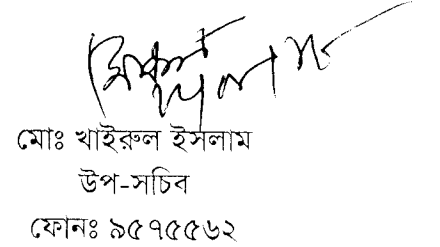 মোঃ খাইরুল ইসলাম
উপ-সচিব
ফোনঃ ৯৫৭৫৫৬২